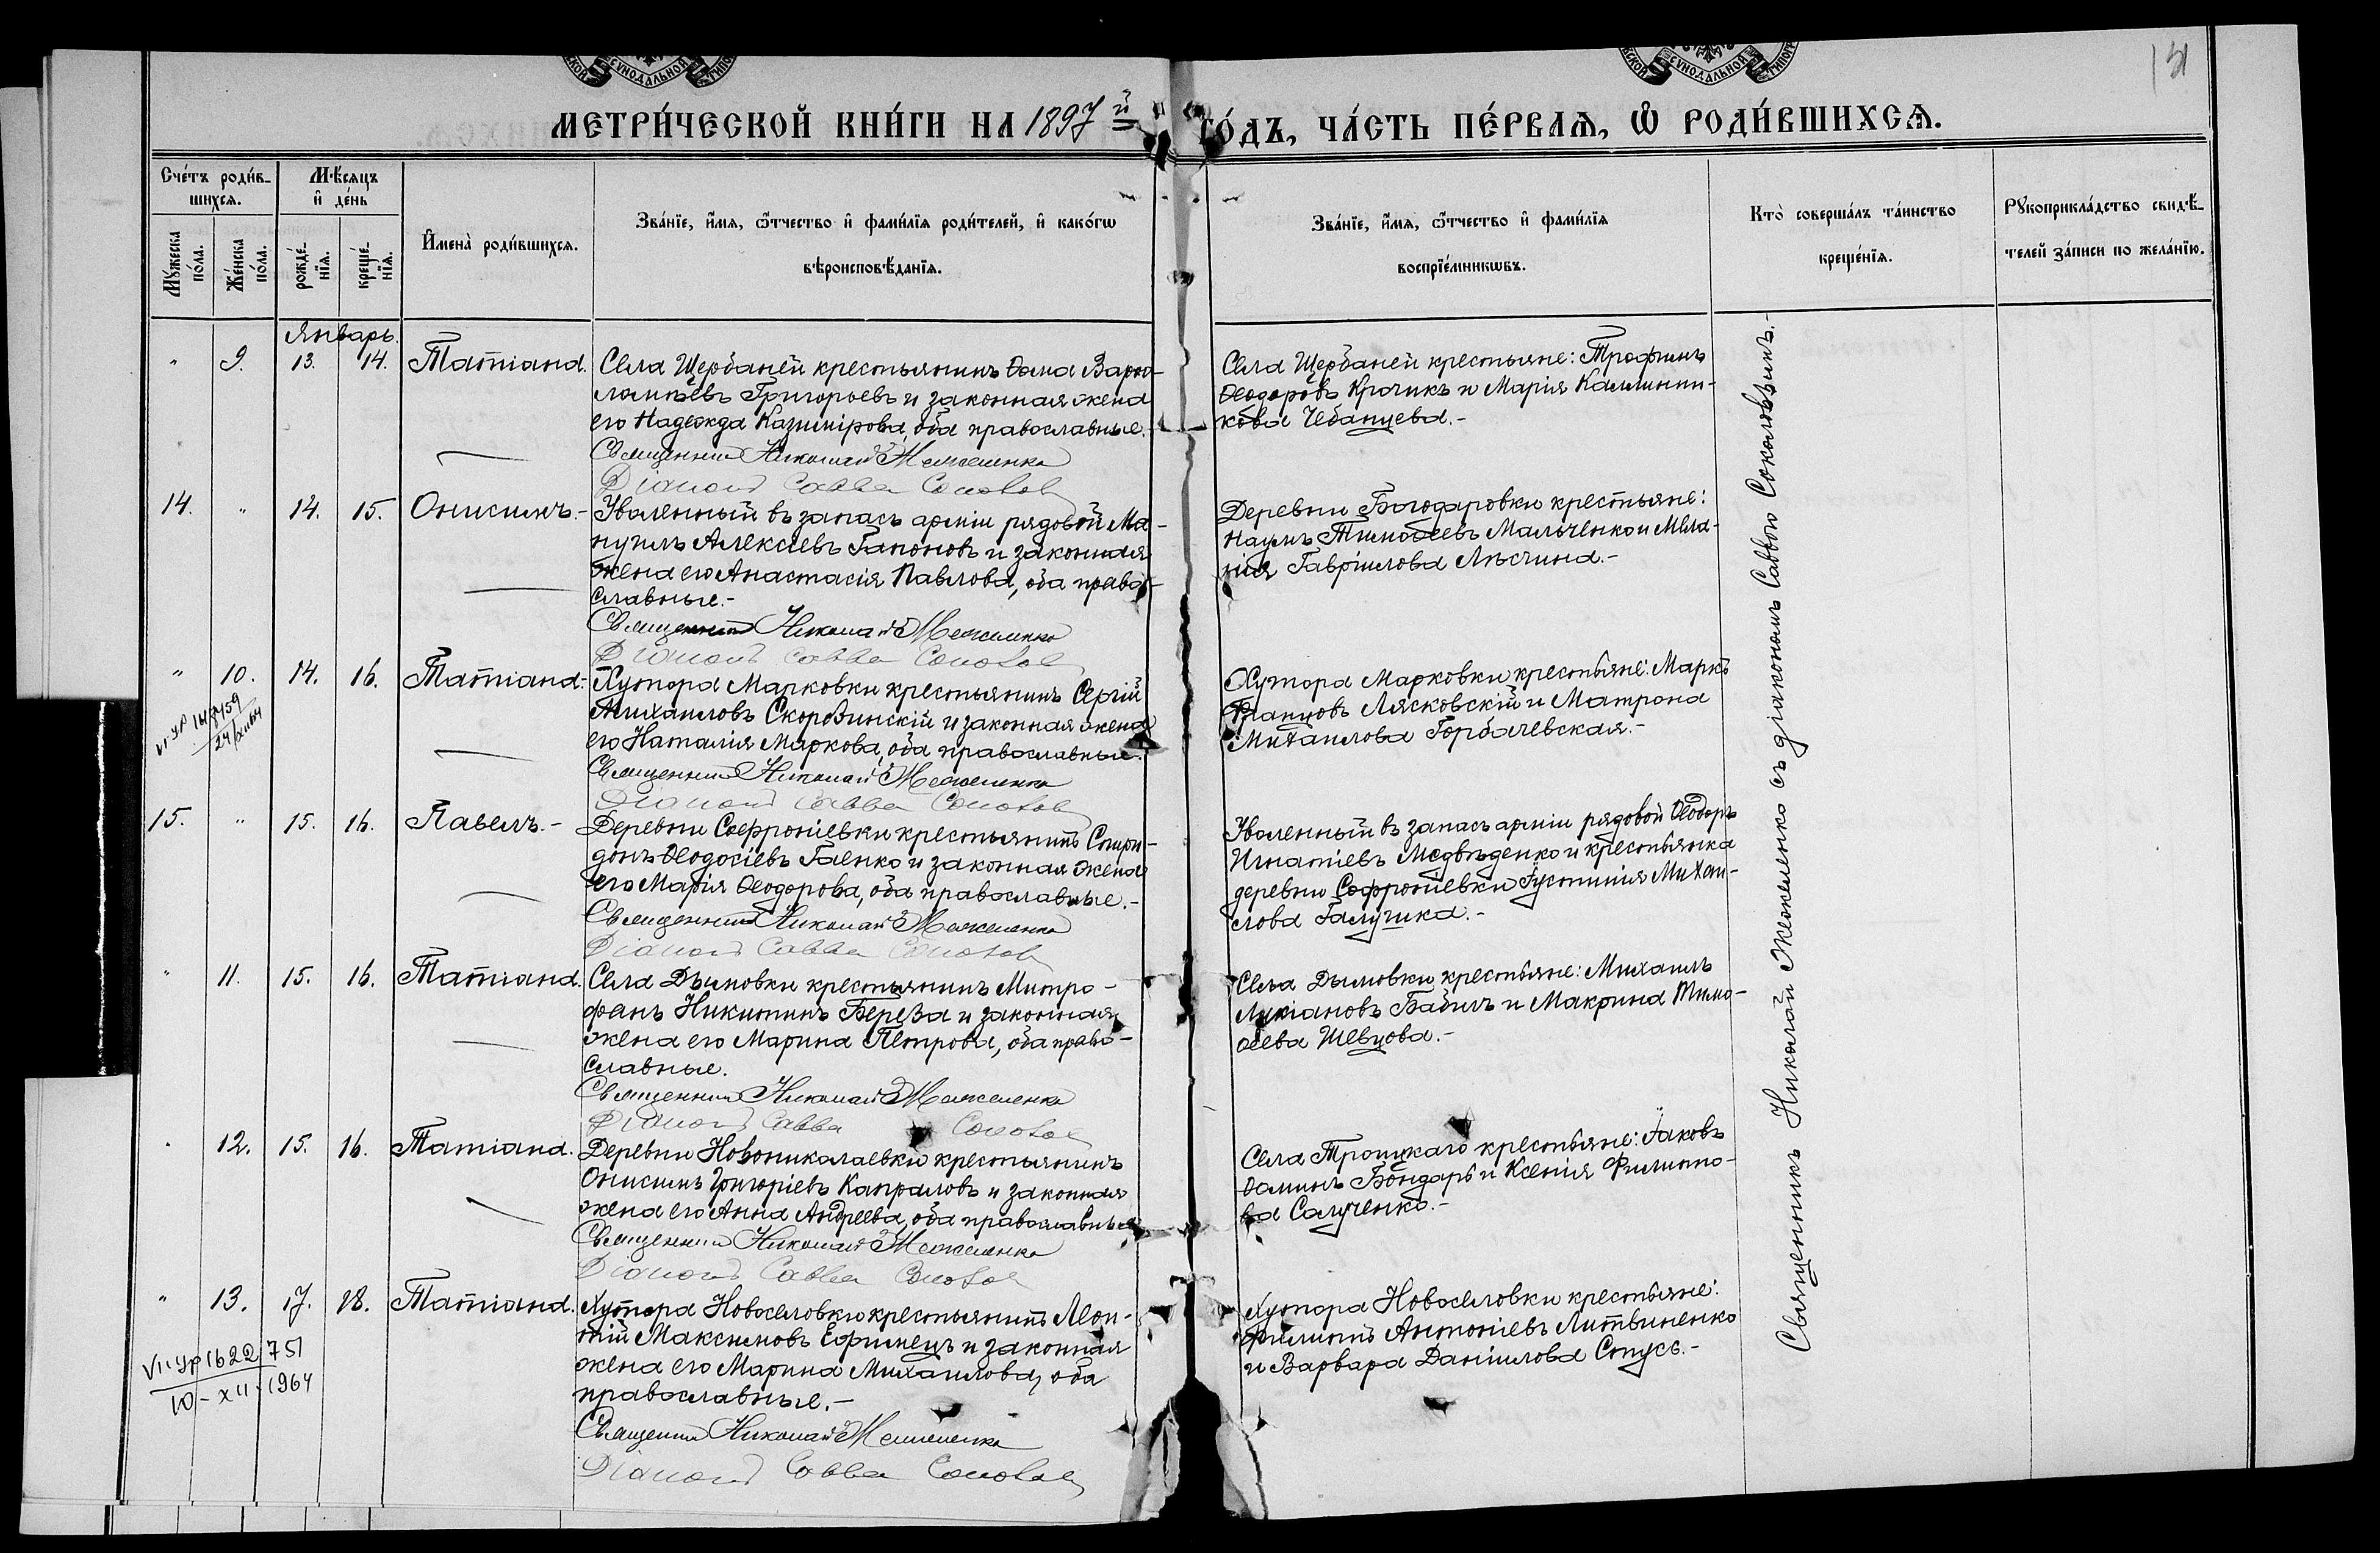 МЕТРИ́ЧЕСКОЙ КНИ́ГИ НА 1897й ГО́ДЪ, ЧА́СТЬ ПЕ́РВАѦ, Ѡ РОДИ́ВШИХСѦ.
Сче́тъ роди́в-
шихсѧ.
Мѣ́сяцъ
и де́нь
Имена̀ роди́вшихсѧ.
Зва́нїе, и́мѧ, ѻ́тчество и фами́лїѧ роди́телей, и како́гѡ
вѣроисповѣ́данїѧ.
Зва́нїе, и́мѧ, ѻ́тчество и фами́лїѧ
воспрїе́мникѡвъ.
Кто̀ соверша́лъ та́инство
креще́нїѧ.
Рꙋкоприкла́дство свидѣ́-
телей за́писи по жела́нїю.
Мꙋ́жеска
по́ла.
Же́нска
по́ла.
рожде́-
нїѧ.
креще́-
нїѧ.
Январь.
" 9. 13. 14. Татіана.
Села Щербаней крестьянинъ Ѳома Варѳо-
ломѣевъ Григорьевъ и законная жена
его Надежда Казимірова, оба православные.
Священникъ Николай Межеленко
Діаконъ Савва Соколов
Села Щербаней крестьяне: Трофимъ
Ѳеодоровъ Крочикъ и Марія Каллинни-
кова Чебанцева.-
14. " 14. 15. Онисимъ.-
Уволенный въ запасъ арміи рядовой Ма-
нуилъ Алексіевъ Гапоновъ и законная
жена его Анастасія Павлова, оба право-
славные.-
Священникъ Николай Межеленко
Діаконъ Савва Соколов
Деревни Богодаровки крестьяне:
Наумъ Тимоѳеевъ Мальченко и Мела-
нія Гавріилова Лѣсчина.-
" 10. 14. 16. Татіана.-
Хутора Марковки крестьянинъ Сергій
Михаиловъ Скоробинскій и законная жена
его Наталія Маркова, оба православные.
Священникъ Николай Межеленко
Діаконъ Савва Соколов
Хутора Марковки крестьяне: Маркъ
Францовъ Лясковскій и Матрона
Михаилова Горбачевская.-
15. " 15. 16. Павелъ.-
Деревни Софроніевки крестьянинъ Спири-
донъ Ѳеодосіевъ Гаенко и законная жена
его Марія Ѳеодорова, оба православные.-
Священникъ Николай Межеленко
Діаконъ Савва Соколов
Уволенный въ запасъ арміи рядовой Ѳеодоръ
Игнатіевъ Медвѣденко и крестьянка
деревни Софроніевки Іустинія Михаи-
лова Галушка.-
" 11. 15. 16. Татіана.
Села Дымовки крестьянинъ Митро-
фанъ Никитинъ Береза и законная
жена его Марина Петрова, оба право-
славные.
Священникъ Николай Межеленко
Діаконъ Савва Соколов
Села Дымовки крестьяне: Михаилъ
Лукіановъ Бабичъ и Макрина Тимо-
ѳеева Шевцова.-
12. 15. 16. Татіана.
Деревни Новониколаевки крестьянинъ
Онисимъ Григоріевъ Капраловъ и законная
жена его Анна Андреева, оба православные
Священникъ Николай Межеленко
Діаконъ Савва Соколов
Села Троицкаго крестьяне: Іаковъ
Ѳоминъ Бондарь и Ксенія Филиппо-
ва Салученко.-
" 13. 17. 18. Татіана.
VII ур 1622751
10-XII-1964
Хутора Новоселовки крестьянинъ Леон-
тій Максимовъ Ефимецъ и законная
жена его Марина Михаилова, оба
православные.-
Священникъ Николай Межеленко
Діаконъ Савва Соколов
Хутора Новоселовки крестьяне:
Филиппъ Антоніевъ Литвиненко
и Варвара Даніилова Стусъ.-
Священникъ Николай Межеленко съ діакономъ Саввою Соколовымъ.-